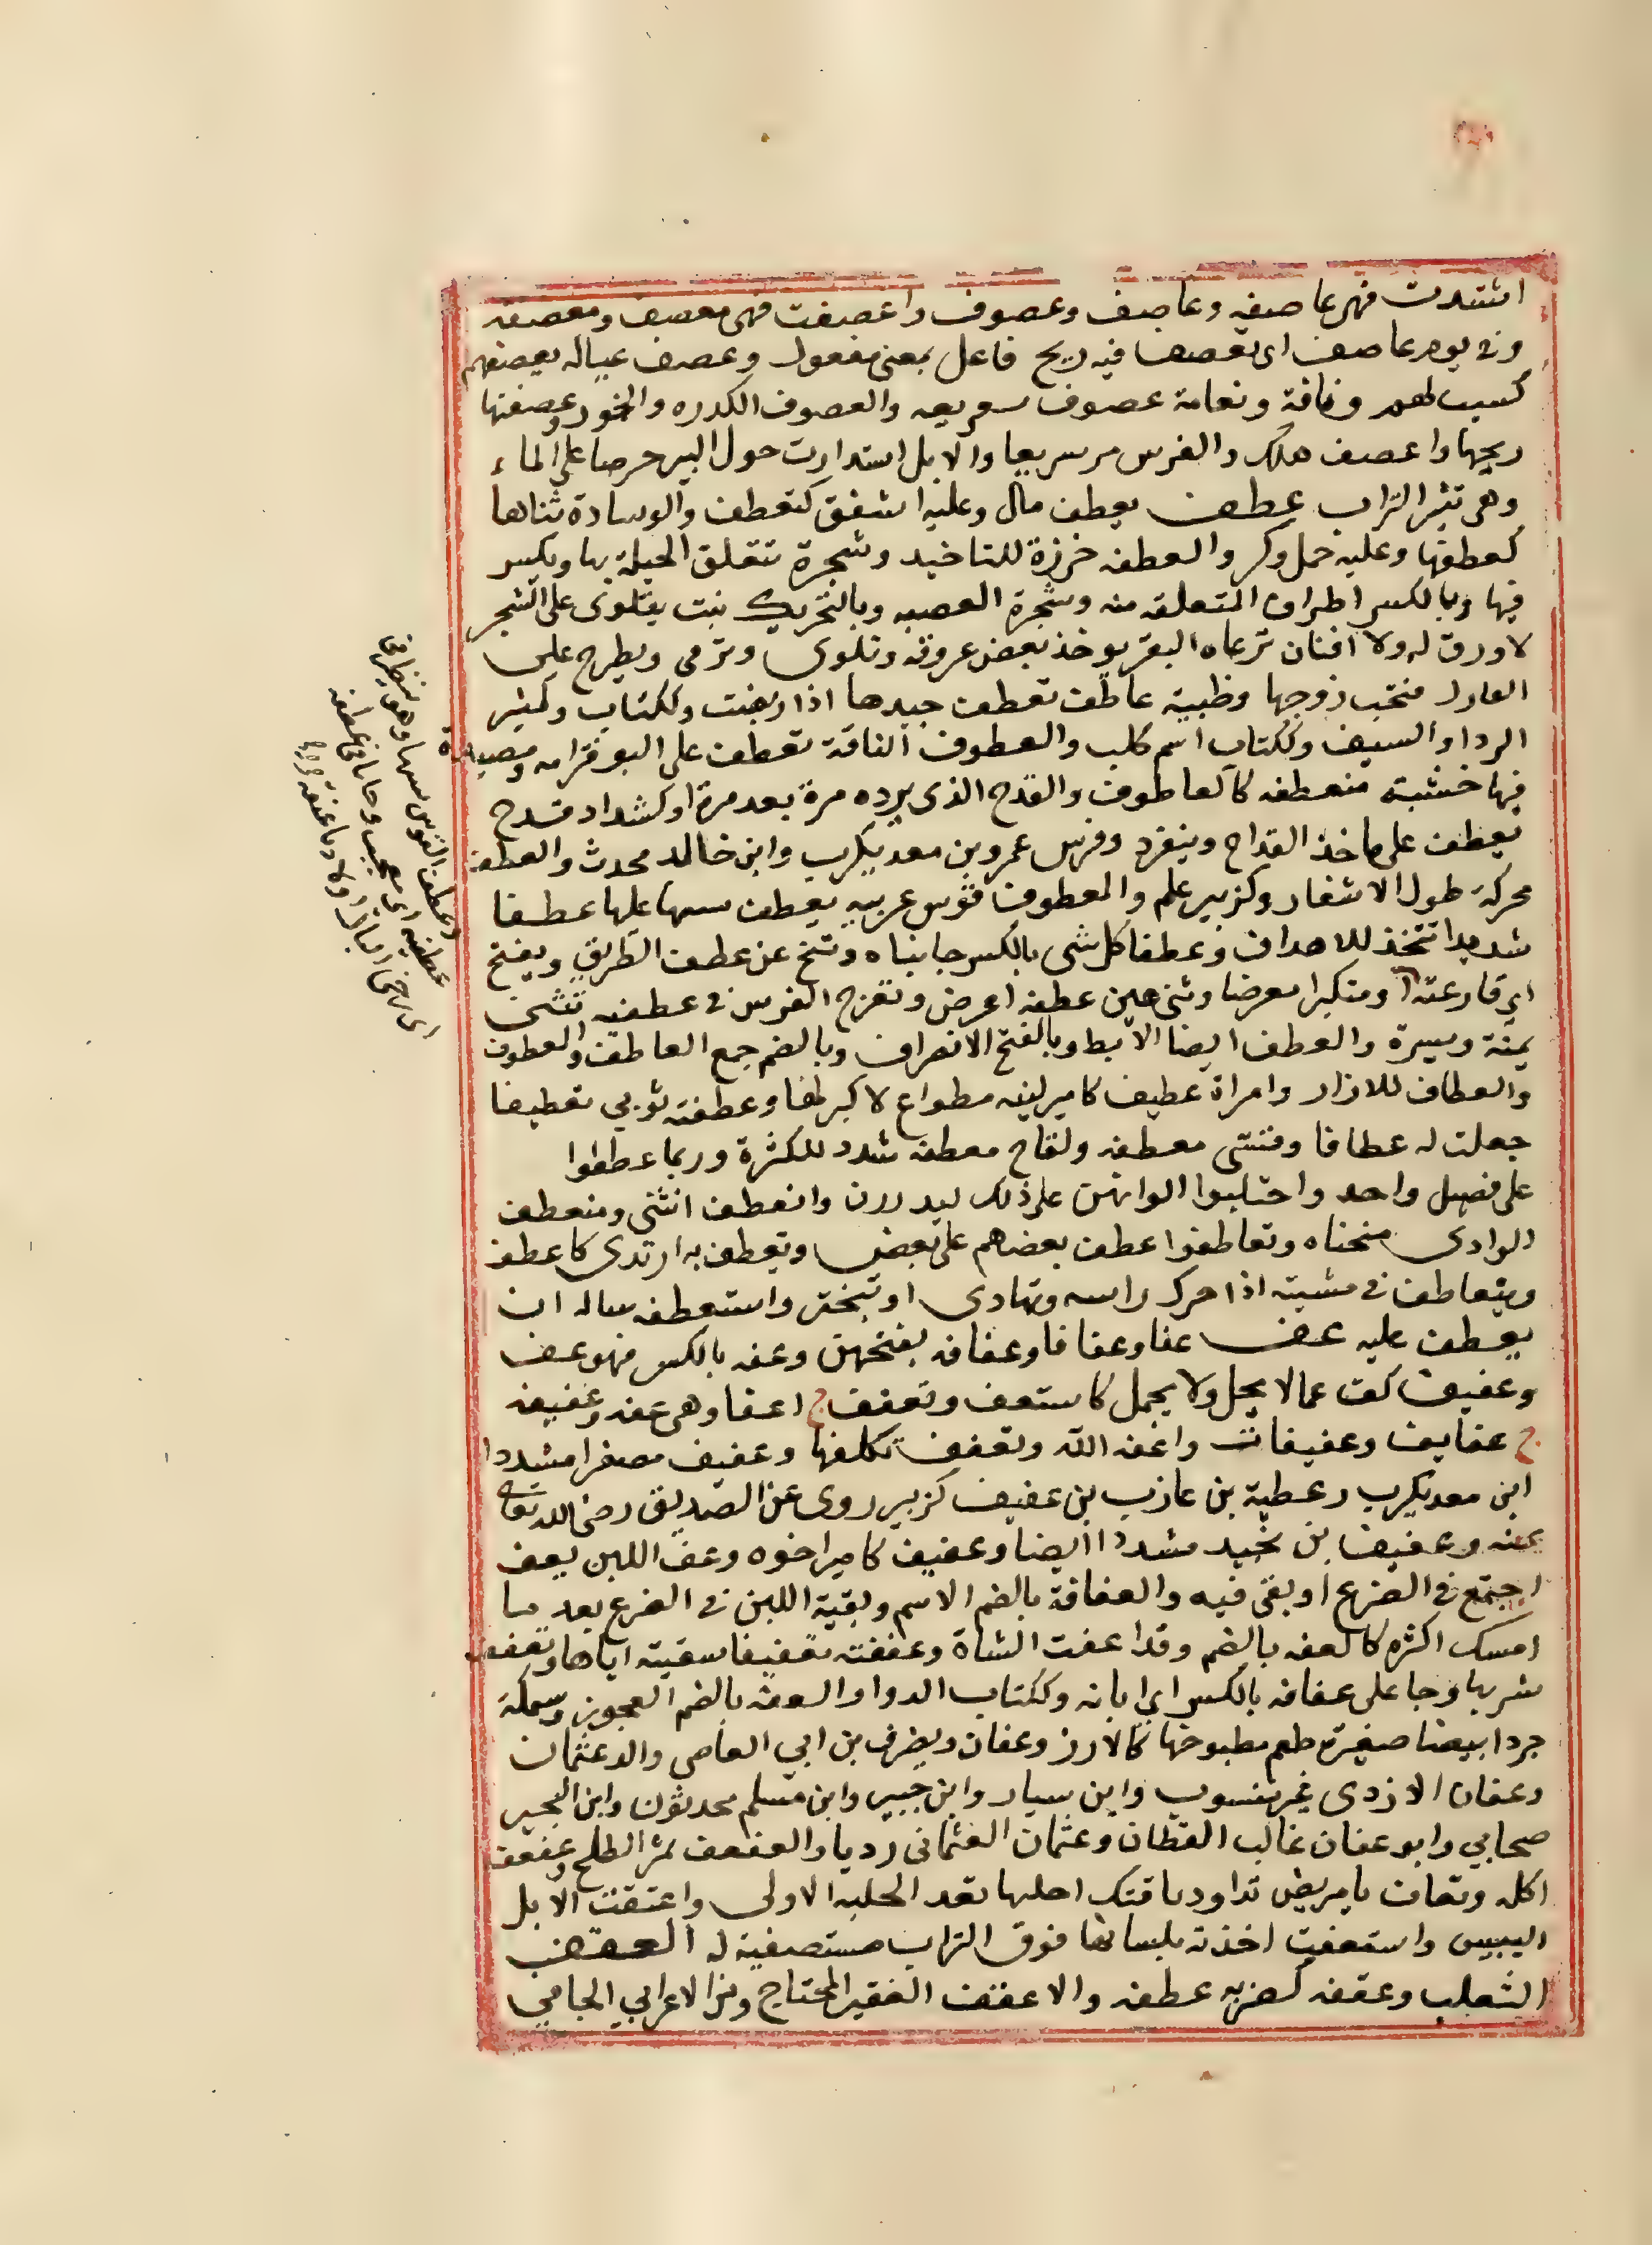 اشتدت فهى عاصفه وعاصف وعصوف واعصفت فهى معصف ومعصفه
وفي يوم عاصف اى تعصف فيه ريح فاعل بمعنى مفعول وعصف عياله يعصفهم
كسب لهم وناقة ونعامة عصوف سريعه والعصوف الكدره والخمور وعصفتها
ريحها واعصف هلك والفرس مر سريعا والابل استدارت حول البير حرصا على الماء
وهى تثير التراب عطف يعطف مال وعليه اشفق كتعطف والوسادة ثناها
كعطفها وعليه حمل وكر والعطفه خرزة للتاخيد وشجرة تتعلق الحبلة بها ويكسر
فيها وبالكسر اطراف المتعلقه منه وشجرة العصبه وبالتحريك نبت يتلوى على الشجر
لا ورق له ولا افنان ترعاه البقر يوخذ بعض عروقه وتلوى وترمى ويطرح على
الفارك فتحب زوجها وظبية عاطف تعطف جيدها اذا ربضت وككتاب وكمنبر
الردا والسيف وككتاب اسم كلب والعطوف الناقة تعطف على البو فترامه ومصيدة
فيها خشبة منعطفه كالعاطوف والقدح الذى يرده مرة بعد مرة او كشداد قدح
يعطف على ماخذ القداح وينفرد وفرس عمرو بن معديكرب وابن خالد محدث والعطف
محركة طول الاشفار وكزبير علم والمعطوف قوس عربيه يعطف سيها عليها عطفا
شديدا تتخذ للاهداف وعطفا كل شى بالكسر جانباه وتنح عن عطف الطريق ويفتح
اى قارعته او متكبرا معرضا وثنى عين عطفه اعرض وتعوج الفرس في عطفيه تثنى
يمنة ويسرة والعطف ايضا الابط وبالفتح الانصراف وبالضم جمع العاطف والعطوف
والعطاف للازار وامراة عطيف كامير لينه مطواع لا كبر لها وعطفته ثوبي تعطيفا
جعلت له عطافا وقسى معطفه ولقاح معطفه شدد للكثرة وربما عطفوا
على فصيل واحد واحتلبوا البانهن على ذلك ليدررن وانعطف انثنى ومنعطف
الوادى منحناه وتعاطفوا عطف بعضهم على بعض وتعطف به ارتدى كاعطف
ويتعاطف في مشيته اذا حرك راسه وتهادى او تبختر واستعطفه ساله ان
يعطف عليه عف عفا وعفافا وعفافه بفتحهن وعفه بالكسر فهو عف
وعفيف كف عما لا يحل ولا يجمل كاستعف وتعفف ج اعفا وهى عفه وعفيفه
ج عفايف وعفيفات واعفه الله وتعفف تكلفها وعفيف مصغرا مشددا
ابن معديكرب وعطية بن عازب بن عفيف كزبير روى عن الصديق رضى الله تعالى
عنه وعفيف بن بجيد مشددا ايضا وعفيف كامير اخوه وعف اللبن يعف
اجتمع في الضرع او بقى فيه والعفافة بالضم الاسم وبقية اللبن في الضرع بعد ما
امسك اكثره كالعفه بالضم وقد اعفت الشاة وعففته تعفيفا سقيته اياها وتعفف
شربها وجا على عفافه بالكسر اى ابانه وككتاب الدوا والعفه بالضم العجوز وسمكة
جردا بيضا صغيرة طعم مطبوخها كالارز وعفان ويصرف بن ابي العاص والد عثمان
وعفان الازدى غير منسوب وابن سيار وابن جبير وابن مسلم محدثون وابن البجير
صحابي وابو عفان غالب القطان وعثمان العثمانى رويا والعفعف ثمر الطلح وعفعف
اكله وتعاف يا مريض تداو وناقتك احلبها بعد الحلبه الاولى واعتفت الابل
اليبيس واستعفت اخذته بلسانها فوق التراب مستصفية له العقف
الثعلب وعقفه كضربه عطفه والاعقف الفقير المحتاج ومن الاعرابي الجافي
وعطف القوس سيها وهو ينظر فى
عطفيه اى معجب وجا ثانى عطفه
اى رخى البال او لاويا عنقه